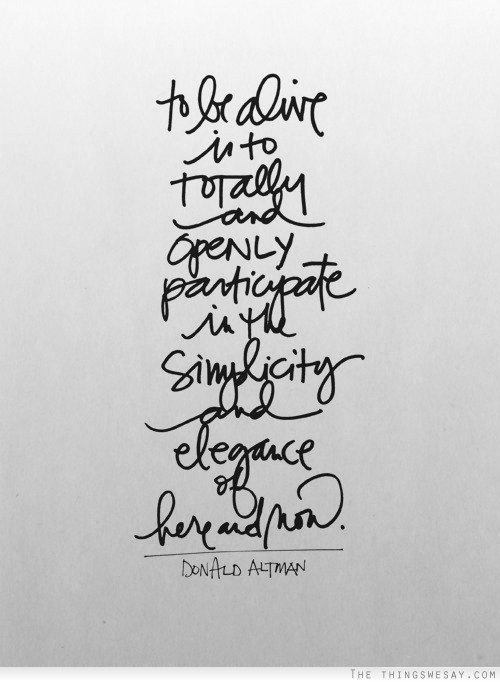 to be alive
is to
totally
and
openly
participate
in the
simplicity
and
elegance
of
here and now.
DONALD ALTMAN
THE THINGSWESAY.COM